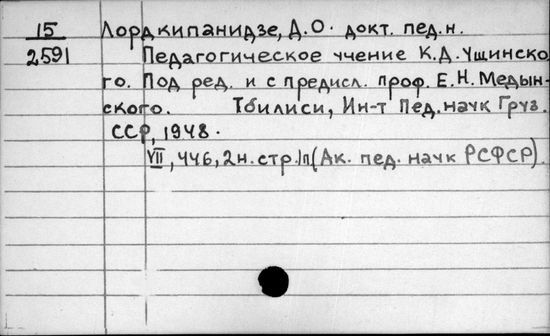 15 Лордкипанидзе, Д.О. докт. пед.н.
2591 Педагогическое учение К.Д.Ушинско
го. Под ред. и с предисл. проф. Е.Н.Медын-
ского. Тбилиси, Ин-т Пед.наук Груз.
ССР, 1948.
VII, 446, 2н.стр./п(Ак. пед. наук РСФСР).